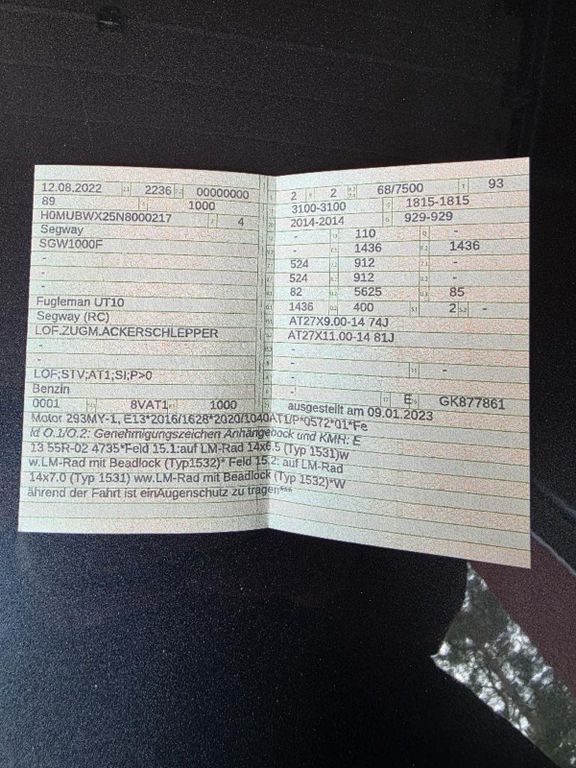 12.08.2022 2236 00000000
89 1000
H0MUBWX25N8000217 4
Segway
SGW1000F
-
-
-
Fugleman UT10
Segway (RC)
LOF.ZUGM.ACKERSCHLEPPER
-
-
LOF;STV;AT1;SI;P>0
Benzin
0001 8VAT1 1000
2 2 68/7500 93
3100-3100 1815-1815
2014-2014 929-929
- 110 -
- 1436 1436
524 912 -
524 912 -
82 5625 85
1436 400 2 -
AT27X9.00-14 74J
AT27X11.00-14 81J
-
- -
-
- E GK877861
ausgestellt am 09.01.2023
Motor 293MY-1, E13*2016/1628*2020/1040AT1/P*0572*01*Fe
ld O.1/O.2: Genehmigungszeichen Anhängebock und KMH: E
13 55R-02 4735*Feld 15.1:auf LM-Rad 14x6.5 (Typ 1531)w
w.LM-Rad mit Beadlock (Typ1532)* Feld 15.2: auf LM-Rad
14x7.0 (Typ 1531) ww.LM-Rad mit Beadlock (Typ 1532)*W
ährend der Fahrt ist einAugenschutz zu tragen***